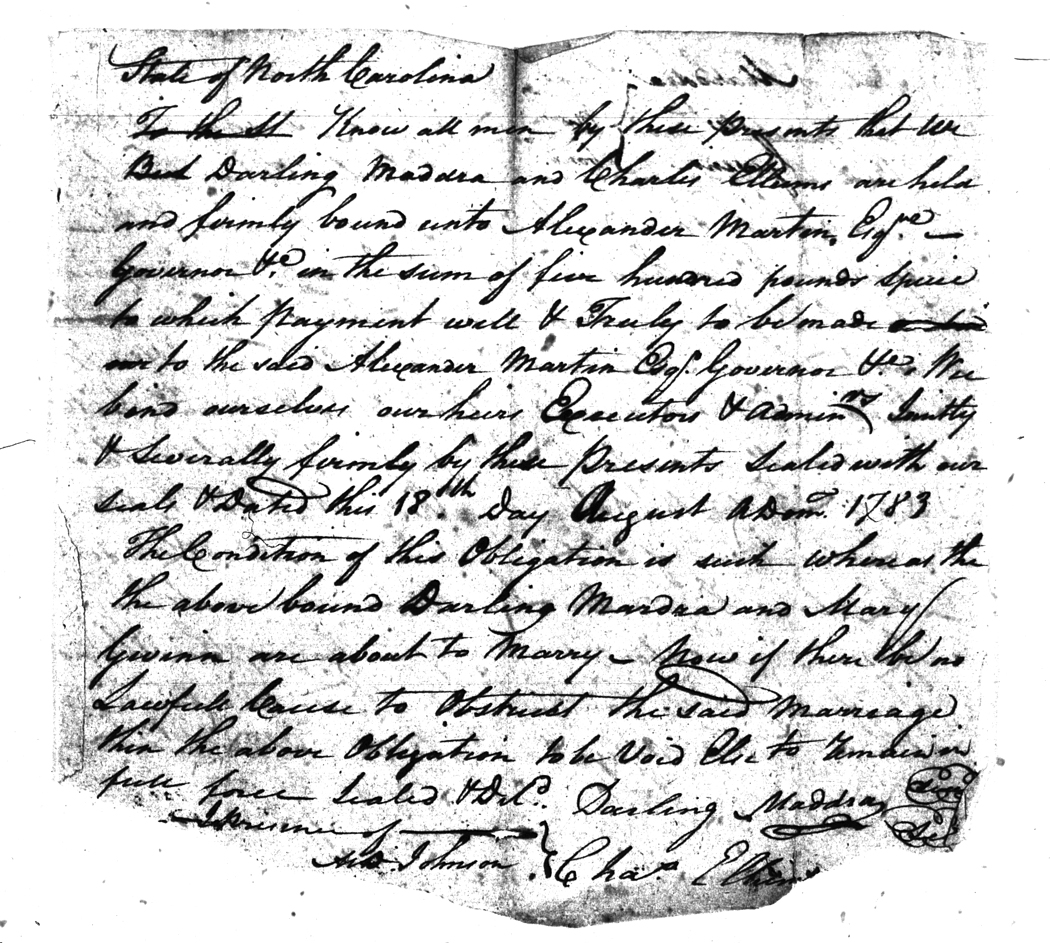 State of North Carolina
To the St Know all men by these presents that We
But Darling Maddra and Charles Ellums are held
and firmly bound unto Alexander Martin, Esqre
Governor &c in the sum of five hundred pounds Specie
to which payment well & Truly to be made
to the said Alexander Martin Esqr. Governor &c. We
bind ourselves our heirs Executors & Adminrs Jointly
& Severally firmly by these presents Sealed with our
seals & Dated this 18th Day August ADom. 1783
The Condition of this Obligation is such whereas the
the above bound Darling Mardra and Mary
Gwinn are about to Marry - Now if there be no
Lawfull Cause to Obstruct the said Marriage
then the above Obligation to be Void Else to remain in
full force Sealed & Deld. Darling Maddray Seal
In Presence of
Johnson Chas Ellums